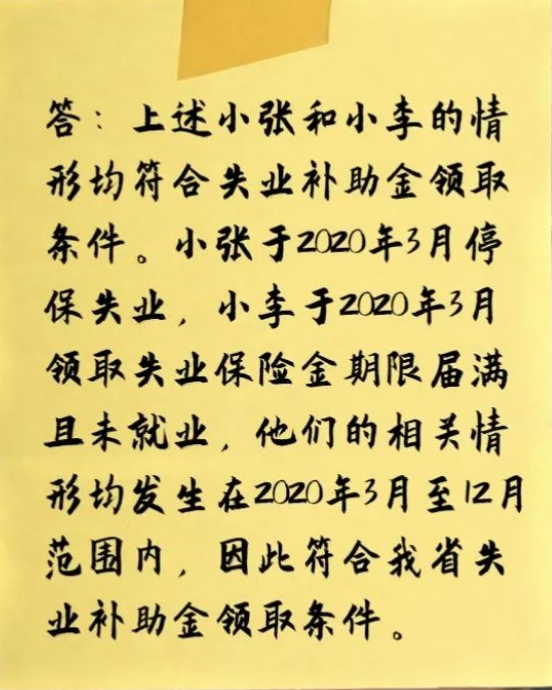 答：上述小张和小李的情
形均符合失业补助金领取
条件。小张于2020年3月停
保失业，小李于2020年3月
领取失业保险金期限届满
且未就业，他们的相关情
形均发生在2020年3月至12月
范围内，因此符合我省失
业补助金领取条件。